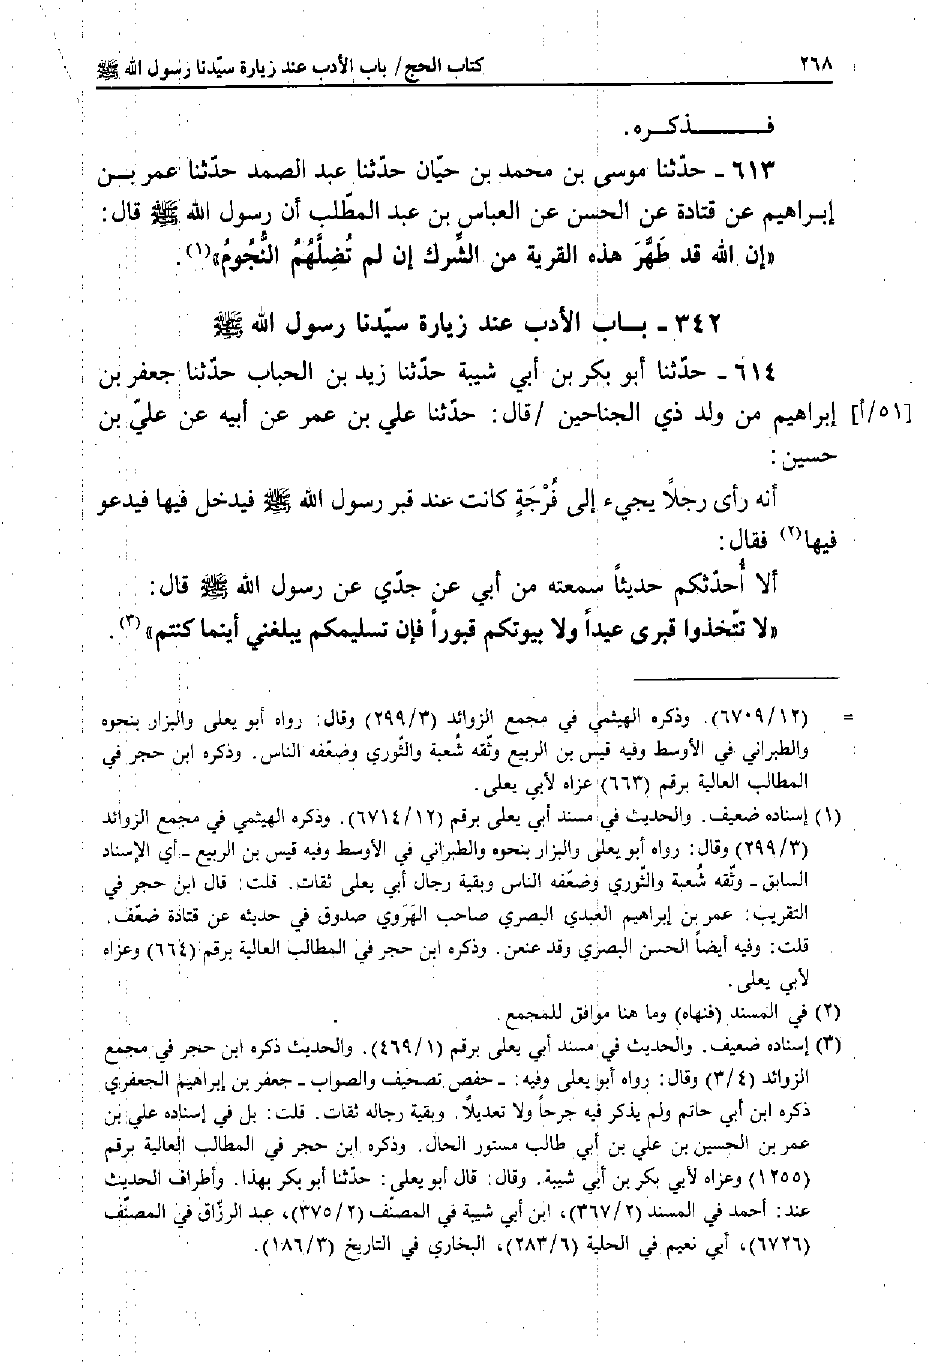 ٢٦٨ كتاب الحج/ باب الأدب عند زيارة سيّدنا رسول الله ﷺ
فـــــــذكـره.
٦١٣ ـ حدّثنا موسى بن محمد بن حيّان حدّثنا عبد الصمد حدّثنا عمر بـن
إبـراهيم عن قتادة عن الحسن عن العباس بن عبد المطّلب أن رسول الله ﷺ قال:
«إن الله قد طَهَّرَ هذه القرية من الشِّرك إن لم تُضِلَّهُمُ النُّجُومُ»(١).
٣٤٢ ـ بـاب الأدب عند زيارة سيّدنا رسول الله ﷺ
٦١٤ ـ حدّثنا أبو بكر بن أبي شيبة حدّثنا زيد بن الحباب حدّثنا جعفر بن
[٥١/أ] إبراهيم من ولد ذي الجناحين /قال: حدّثنا علي بن عمر عن أبيه عن عليّ بن
حسين:
أنه رأى رجلاً يجيء إلى فُرْجَةٍ كانت عند قبر رسول الله ﷺ فيدخل فيها فيدعو
فيها(٢) فقال:
ألا أُحدّثكم حديثاً سمعته من أبي عن جدّي عن رسول الله ﷺ قال:
«لا تتّخذوا قبرى عيداً ولا بيوتكم قبوراً فإن تسليمكم يبلغني أينما كنتم»(٣).
= (٦٧٠٩/١٢). وذكره الهيثمي في مجمع الزوائد (٢٩٩/٣) وقال: رواه أبو يعلى والبزار بنحوه
والطبراني في الأوسط وفيه قيس بن الربيع وثّقه شُعبة والثّوري وضعّفه الناس. وذكره ابن حجر في
المطالب العالية برقم (٦٦٣) عزاه لأبي يعلى.
(١) إسناده ضعيف. والحديث في مسند أبي يعلى برقم (٦٧١٤/١٢). وذكره الهيثمي في مجمع الزوائد
(٢٩٩/٣) وقال: رواه أبو يعلى والبزار بنحوه والطبراني في الأوسط وفيه قيس بن الربيع ـ أي الإسناد
السابق ـ وثّقه شُعبة والثّوري وضعّفه الناس وبقية رجال أبي يعلى ثقات. قلت: قال ابن حجر في
التقريب: عمر بن إبراهيم العبدي البصري صاحب الهَرَوي صدوق في حديثه عن قتادة ضعّف.
قلت: وفيه أيضاً الحسن البصري وقد عنعن. وذكره ابن حجر في المطالب العالية برقم (٦٦٤) وعزاه
لأبي يعلى.
(٢) في المسند (فنهاه) وما هنا موافق للمجمع.
(٣) إسناده ضعيف. والحديث في مسند أبي يعلى برقم (٤٦٩/١). والحديث ذكره ابن حجر في مجمع
الزوائد (٣/٤) وقال: رواه أبو يعلى وفيه: ـ حفص تصحيف والصواب ـ جعفر بن إبراهيم الجعفري
ذكره ابن أبي حاتم ولم يذكر فيه جرحاً ولا تعديلاً. وبقية رجاله ثقات. قلت: بل في إسناده علي بن
عمر بن الحسين بن علي بن أبي طالب مستور الحال. وذكره ابن حجر في المطالب العالية برقم
(١٢٥٥) وعزاه لأبي بكر بن أبي شيبة. وقال: قال أبو يعلى: حدّثنا أبو بكر بهذا. وأطراف الحديث
عند: أحمد في المسند (٣٦٧/٢)، ابن أبي شيبة في المصنّف (٣٧٥/٢)، عبد الرزّاق في المصنّف
(٦٧٢٦)، أبي نعيم في الحلية (٢٨٣/٦)، البخاري في التاريخ (١٨٦/٣).